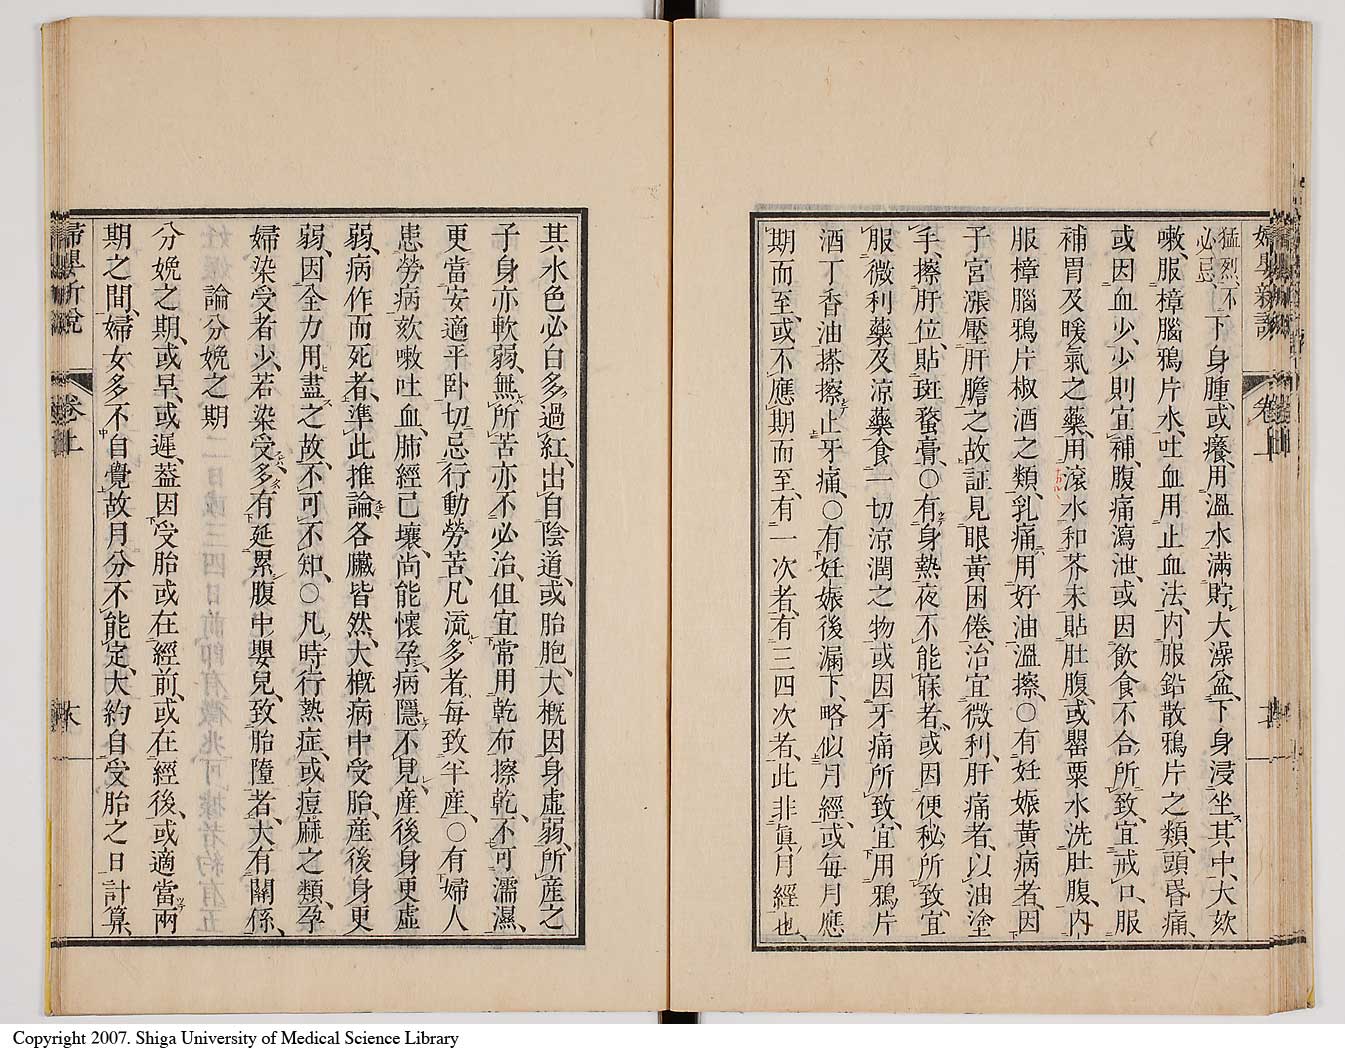 婦嬰新說
卷上
猛烈、不
必忌、
下身腫、或癢、用溫水滿貯大澡盆、下身浸坐其中、大欬
嗽、服樟腦鴉片水、吐血用止血法、內服鉛散鴉片之類、頭昏痛、
或因血少、少則宜補、腹痛瀉泄、或因飲食不合所致、宜戒口、服
補胃及暖氣之藥、用滾水和芥末貼肚腹、或罌粟水洗肚腹、內
服樟腦鴉片椒酒之類、乳痛用好油溫擦、○有妊娠黃病者、因
子宮漲壓肝膽之故、証見眼黃困倦、治宜微利、肝痛者、以油塗
手、擦肝位、貼斑蝥膏、○有身熱夜不能寐者、或因便秘所致、宜
服微利藥及涼藥、食一切涼潤之物、或因牙痛所致、宜用鴉片
酒丁香油搽擦止牙痛、○有妊娠後漏下、略似月經、或每月應
期而至、或不應期而至、有一次者、有三四次者、此非眞月經也、
其水色必白多過紅、出自陰道、或胎胞、大概因身虛弱、所產之
子身亦軟弱、無所苦、亦不必治、但宜常用乾布擦乾、不可濡濕、
更當安適平卧、切忌行動勞苦、凡流多者、每致半產、○有婦人
患勞病欬嗽吐血、肺經已壞、尚能懷孕、病隱不見、產後身更虛
弱、病作而死者、準此推論、各臟皆然、大概病中受胎、產後身更
弱、因全力用盡之故、不可不知、○凡時行熱症、或痘麻之類、孕
婦染受者少、若染受多、有延累腹中嬰兒、致胎墮者、大有關係、
論分娩之期
分娩之期、或早、或遲、葢因受胎或在經前、或在經後、或適當兩
期之間、婦女多不自覺、故月分不能定、大約自受胎之日計算、
婦嬰新說
卷上